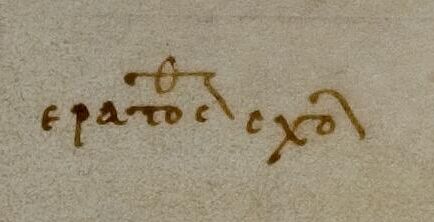 ερατοσθ σχολ